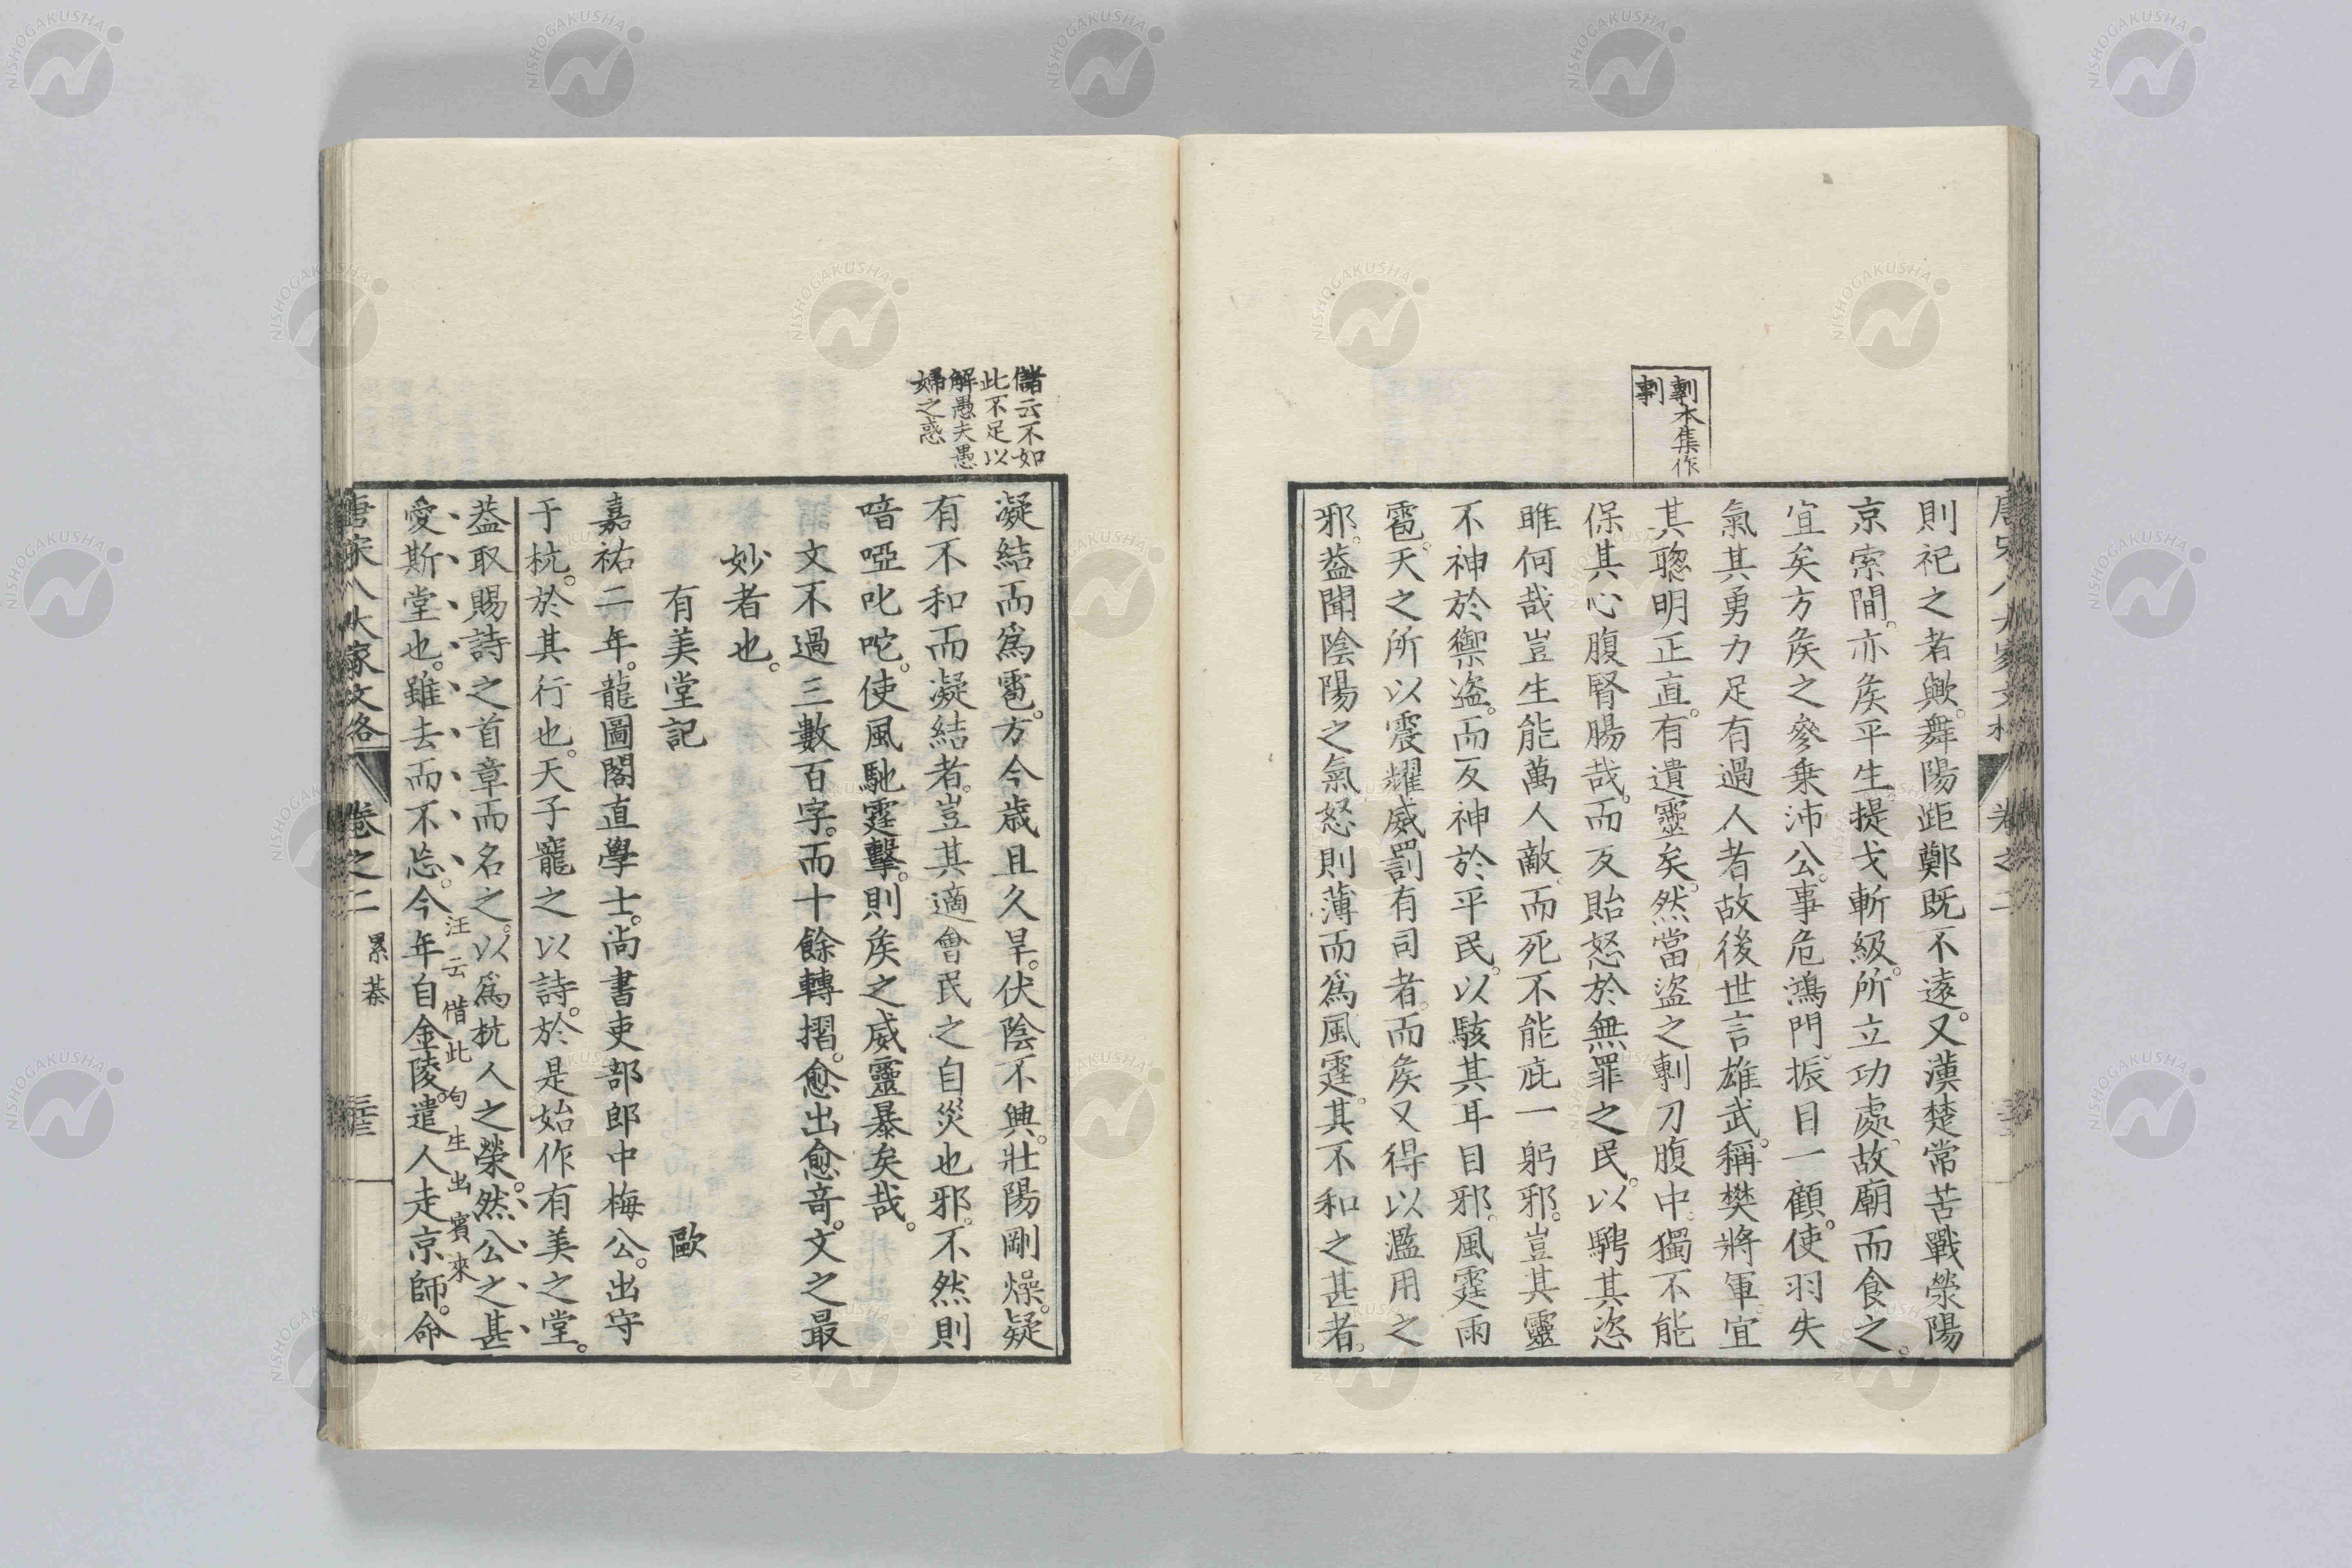 剸本集作
剚
則祀之者歟。舞陽距鄭既不遠。又漢楚常苦戰滎陽
京索間。亦矦平生提戈斬級。所立功處、故廟而食之。
宜矣方矦之參乗沛公。事危鴻門振目一顧。使羽失
氣其勇力足有過人者故後世言雄武。稱樊將軍。宜
其聰明正直。有遺靈矣。然當盜之剸刀腹中。獨不能
保其心腹腎腸哉。而反貽怒於無罪之民。以騁其恣
睢何哉豈生能萬人敵。而死不能庇一躬邪。豈其靈
不神於禦盜。而反神於平民。以駭其耳目邪。風霆雨
雹。天之所以震耀威罰有司者。而矦又得以濫用之
邪。葢聞陰陽之氣怒則薄而爲風霆。其不和之甚者。
儲云不如
此不足以
解愚夫愚
婦之惑
凝結而爲雹。方今歳且久旱。伏陰不興。壯陽剛燥。疑
有不和而凝結者。豈其適會民之自災也邪。不然則
喑啞叱咤。使風馳霆擊。則矦之威靈暴矣哉。
文不過三數百字。而十餘轉摺。愈出愈竒。文之最
妙者也。
有美堂記　歐
嘉祐二年。龍圖閣直學士。尚書吏部郎中梅公。出守
于杭。於其行也。天子寵之以詩。於是始作有美之堂。
葢取賜詩之首章而名之。以爲杭人之榮。然公之甚
汪云偕此句生出賓來
愛斯堂也。雖去而不忘。今年自金陵。遣人走京師。命
唐宋八大家文格　卷之二　累葉